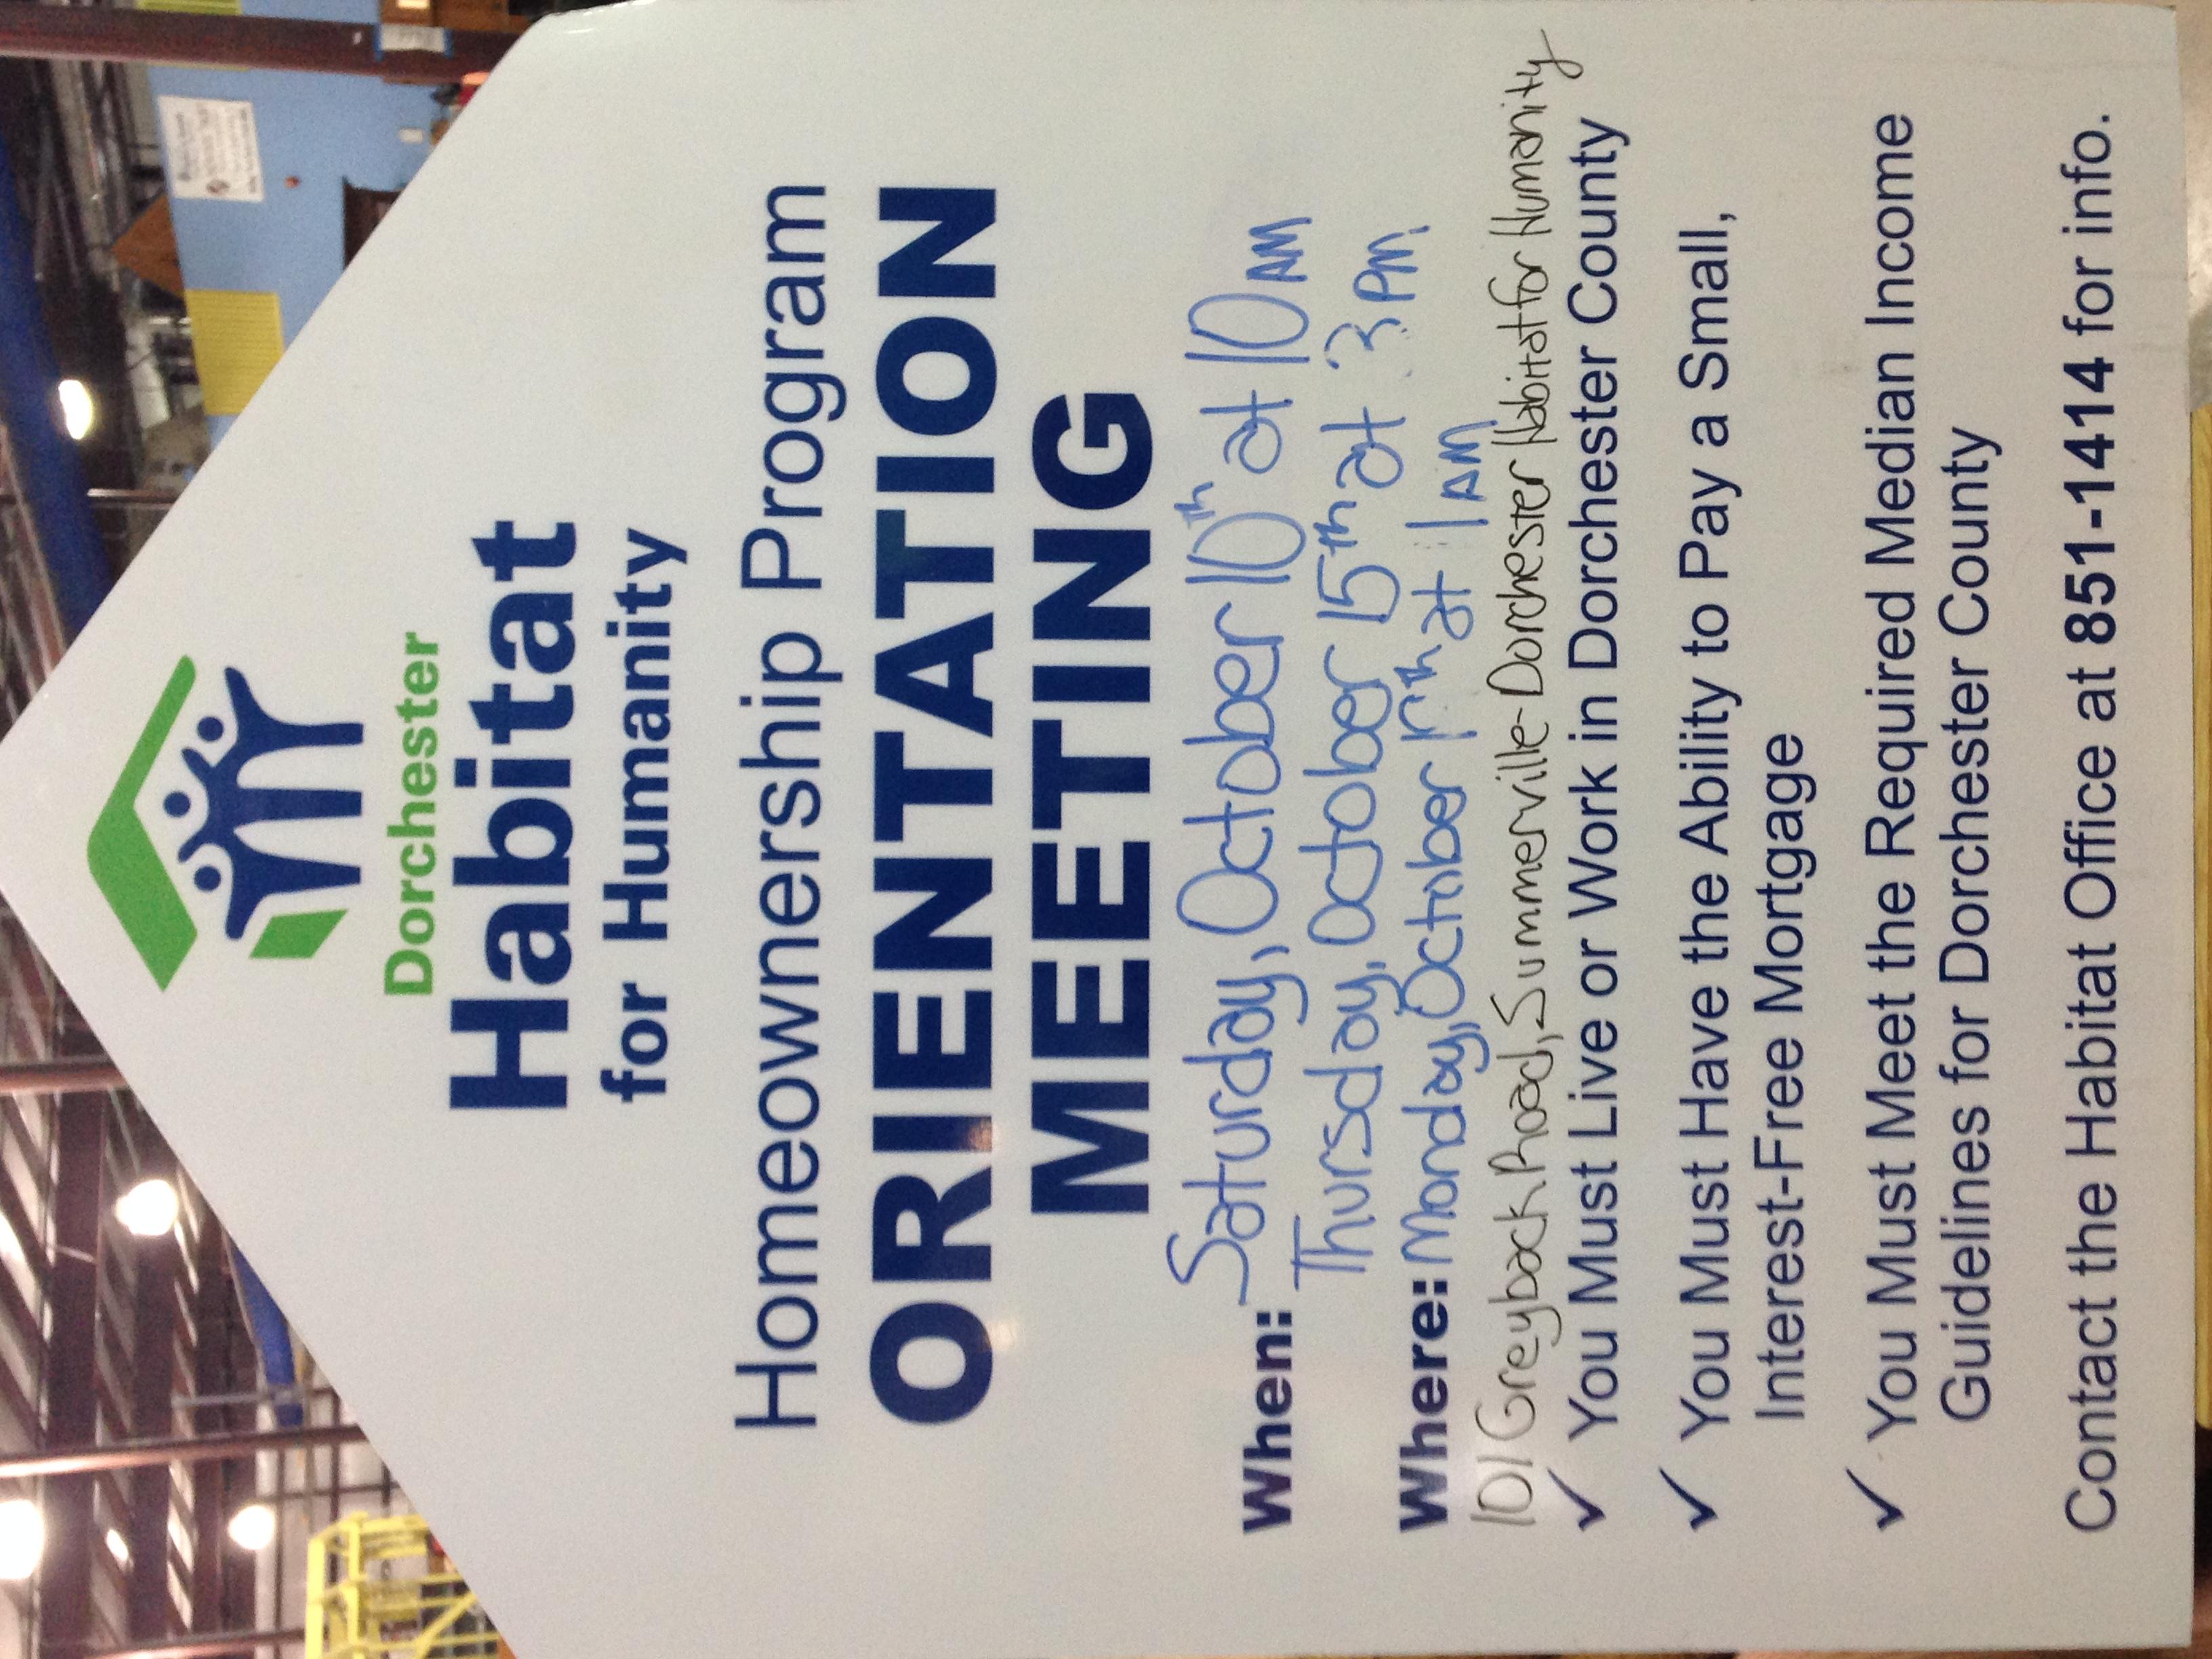 Dorchester
Habitat
for Humanity
Homeownership Program
ORIENTATION
MEETING
When: Saturday, October 10th at 10 AM
Thursday, October 15th at 3 PM.
Where: Monday, October at 1 AM
101 Greyback Road, Summerville - Dorchester Habitat for Humanity
✓ You Must Live or Work in Dorchester County
✓ You Must Have the Ability to Pay a Small,
Interest-Free Mortgage
✓ You Must Meet the Required Median Income
Guidelines for Dorchester County
Contact the Habitat Office at 851-1414 for info.